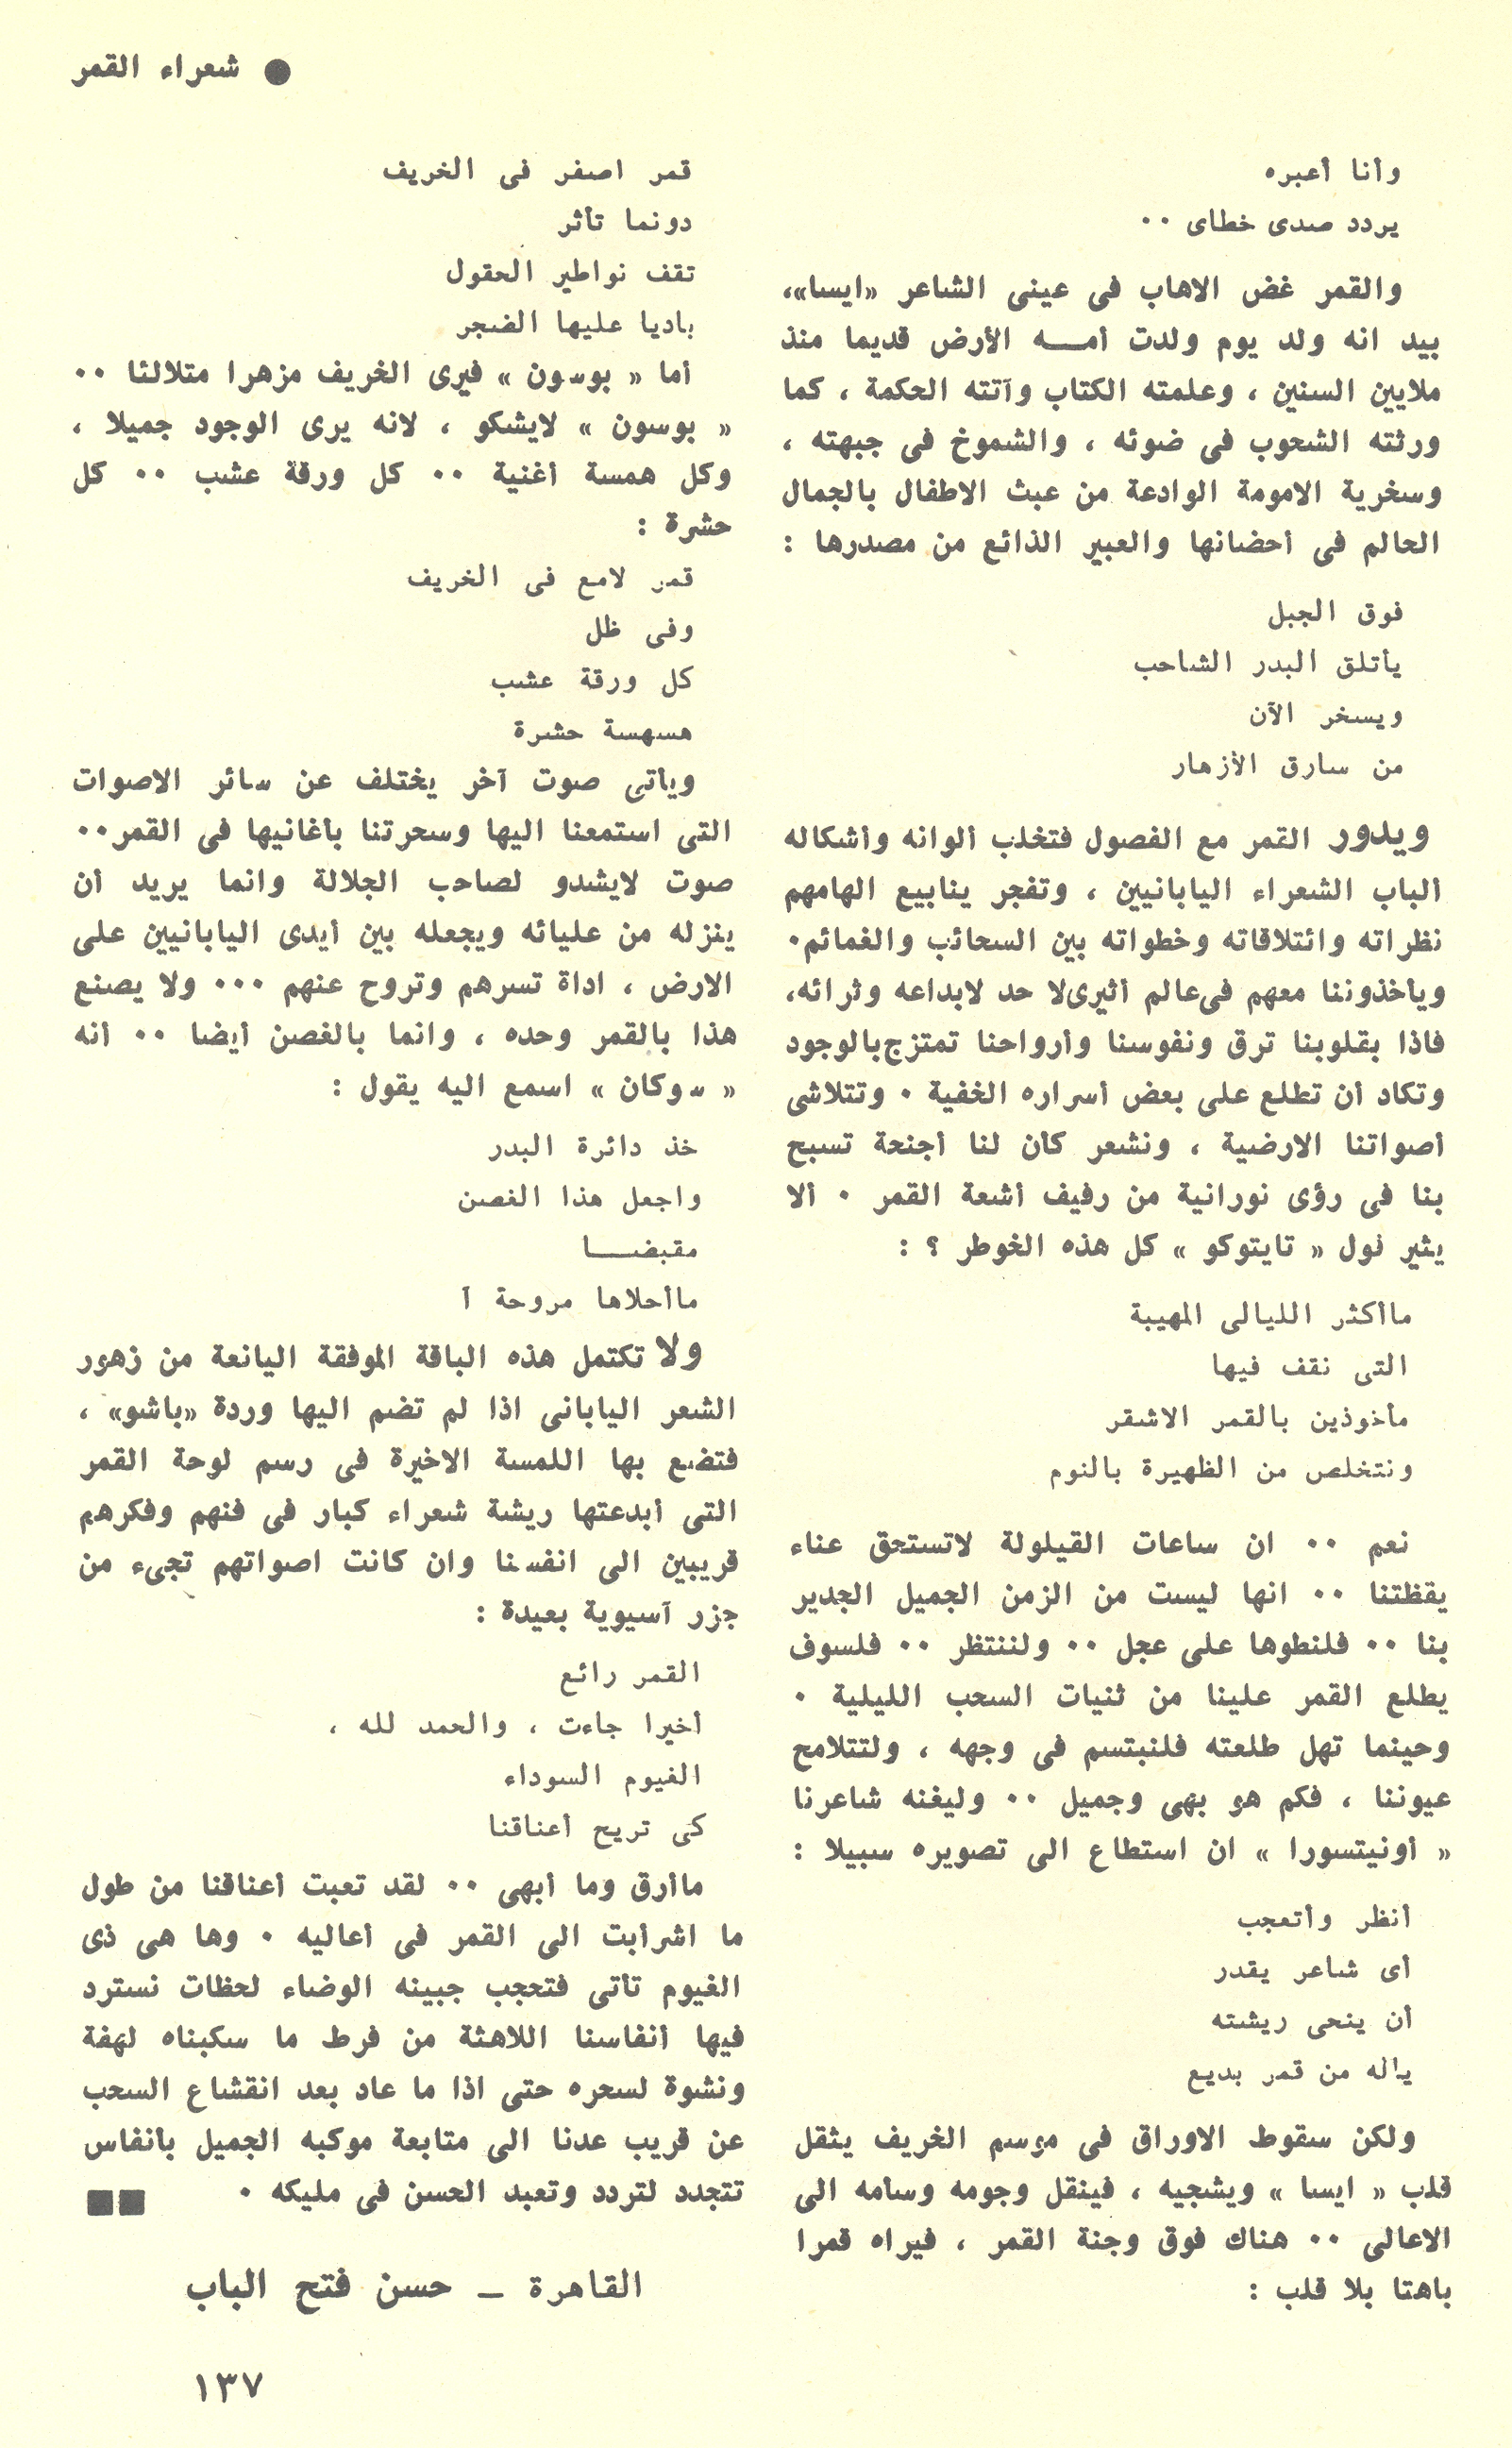 ● شعراء القمر
وأنا أعبره
يردد صدى خطاى ٠٠
والقمر غض الاهاب فى عينى الشاعر «ايسا»،
بيد انه ولد يوم ولدت أمـــه الأرض قديما منذ
ملايين السنين ، وعلمته الكتاب وآتته الحكمة ، كما
ورثته الشحوب فى ضوئه ، والشموخ فى جبهته ،
وسخرية الامومة الوادعة من عبث الاطفال بالجمال
الحالم فى أحضانها والعبير الذائع من مصدرها :
فوق الجبل
يأتلق البدر الشاحب
ويسخر الآن
من سارق الأزهار
ويدور القمر مع الفصول فتخلب ألوانه وأشكاله
ألباب الشعراء اليابانيين ، وتفجر ينابيع الهامهم
نظراته وائتلاقاته وخطواته بين السحائب والغمائم٠
ويأخذوننا معهم فى عالم أثيرى لا حد لابداعه وثرائه،
فاذا بقلوبنا ترق ونفوسنا وأرواحنا تمتزج بالوجود
وتكاد أن تطلع على بعض أسراره الخفية ٠ وتتلاشى
أصواتنا الارضية ، ونشعر كأن لنا أجنحة تسبح
بنا فى رؤى نورانية من رفيف أشعة القمر ٠ ألا
يثير قول « تايتوكو » كل هذه الخوطر ؟ :
ماأكثر الليالى المهيبة
التى نقف فيها
مأخوذين بالقمر الاشقر
ونتخلص من الظهيرة بالنوم
نعم ٠٠ ان ساعات القيلولة لاتستحق عناء
يقظتنا ٠٠ انها ليست من الزمن الجميل الجدير
بنا ٠٠ فلنطوها على عجل ٠٠ ولننتظر ٠٠ فلسوف
يطلع القمر علينا من ثنيات السحب الليلية ٠
وحينما تهل طلعته فلنبتسم فى وجهه ، ولتتلامح
عيوننا ، فكم هو بهى وجميل ٠٠ وليغنه شاعرنا
« أونيتسورا » ان استطاع الى تصويره سبيلا :
أنظر وأتعجب
أى شاعر يقدر
أن ينحى ريشته
ياله من قمر بديع
ولكن سقوط الاوراق فى موسم الخريف يثقل
قلب « ايسا » ويشجيه ، فينقل وجومه وسأمه الى
الاعالى ٠٠ هناك فوق وجنة القمر ، فيراه قمرا
باهتا بلا قلب :
قمر اصفر فى الخريف
دونما تأثر
تقف نواطير الحقول
باديا عليها الضجر
أما « بوسون » فيرى الخريف مزهرا متلالئا ٠٠
« بوسون » لايشكو ، لانه يرى الوجود جميلا ،
وكل همسة أغنية ٠٠ كل ورقة عشب ٠٠ كل
حشرة :
قمر لامع فى الخريف
وفى ظل
كل ورقة عشب
هسهسة حشرة
ويأتى صوت آخر يختلف عن سائر الاصوات
التى استمعنا اليها وسحرتنا بأغانيها فى القمر٠٠
صوت لايشدو لصاحب الجلالة وانما يريد أن
ينزله من عليائه ويجعله بين أيدى اليابانيين على
الارض ، اداة تسرهم وتروح عنهم ٠٠٠ ولا يصنع
هذا بالقمر وحده ، وانما بالغصن أيضا ٠٠ أنه
« سوكان » اسمع اليه يقول :
خذ دائرة البدر
واجعل هذا الغصن
مقبضـــا
ماأحلاها مروحة آ
ولا تكتمل هذه الباقة الموفقة اليانعة من زهور
الشعر اليابانى اذا لم تضم اليها وردة «باشو» ،
فتضع بها اللمسة الاخيرة فى رسم لوحة القمر
التى أبدعتها ريشة شعراء كبار فى فنهم وفكرهم
قريبين الى انفسنا وان كانت اصواتهم تجىء من
جزر آسيوية بعيدة :
القمر رائع
أخيرا جاءت ، والحمد لله ،
الغيوم السوداء
كى تريح أعناقنا
ماأرق وما أبهى ٠٠ لقد تعبت أعناقنا من طول
ما اشرأبت الى القمر فى أعاليه ٠ وها هى ذى
الغيوم تأتى فتحجب جبينه الوضاء لحظات نسترد
فيها أنفاسنا اللاهثة من فرط ما سكبناه لهفة
ونشوة لسحره حتى اذا ما عاد بعد انقشاع السحب
عن قريب عدنا الى متابعة موكبه الجميل بأنفاس
تتجدد لتردد وتعبد الحسن فى مليكه ٠ ■■
القاهرة ـ حسن فتح الباب
١٣٧